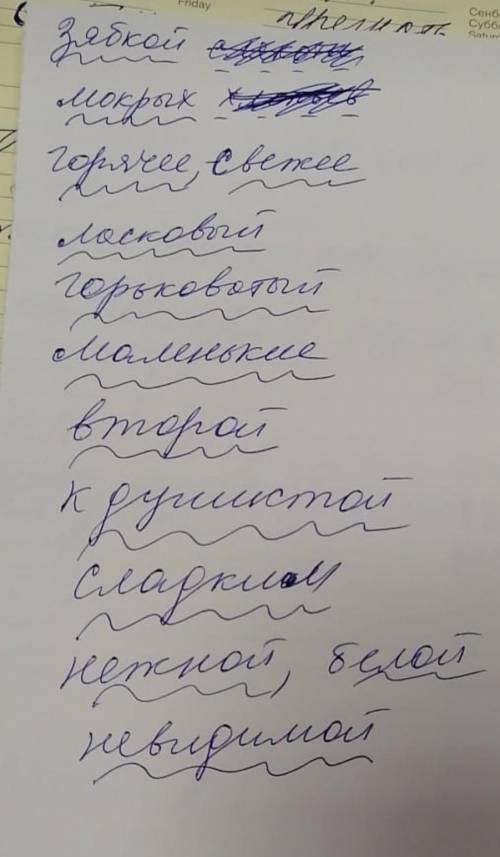 Friday
Сенб
Суббо
Satur
зябкой
мокрых
горячее, свежее
ласковый
горьковатый
маленькие
второй
к душистой
сладким
нежной, белой
невидимой